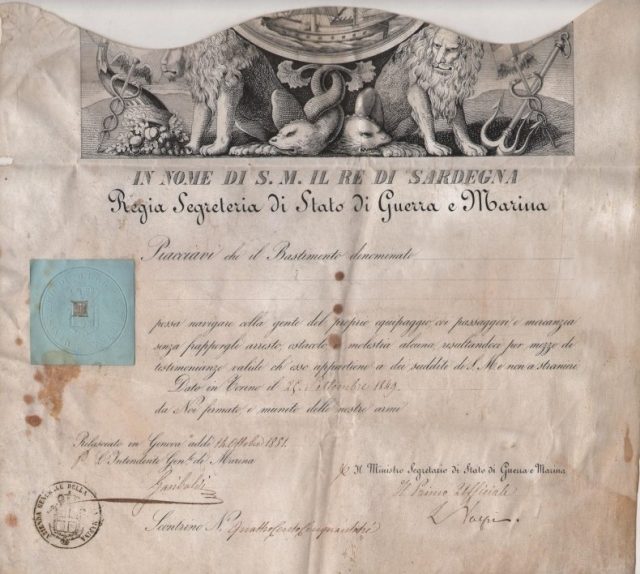 IN NOME DI S. M. IL RE DI SARDEGNA
Regia Segreteria di Stato di Guerra e Marina
Piacciavi che il Bastimento denominato
possa navigare colla gente del proprio equipaggio coi passaggeri e mercanzia
senza frapporgli arresto ostacolo o molestia alcuna, risultandoci per mezzo di
testimonianze valide ch'esso appartiene a dei sudditi di S. M. e non a stranieri
Dato in Torino il 22 Settembre 1849
da Noi firmato e munito delle nostre armi
Rilasciato in Genova addì 14 Ottobre 1851.
L'Intendente Gen.le di Marina
Il Ministro Segretario di Stato di Guerra e Marina
Garibaldi
Il Primo Uffiziale
AZIENDA GENERALE DELLA MARINA
Scontrino N. Quattrocentocinquantatrè